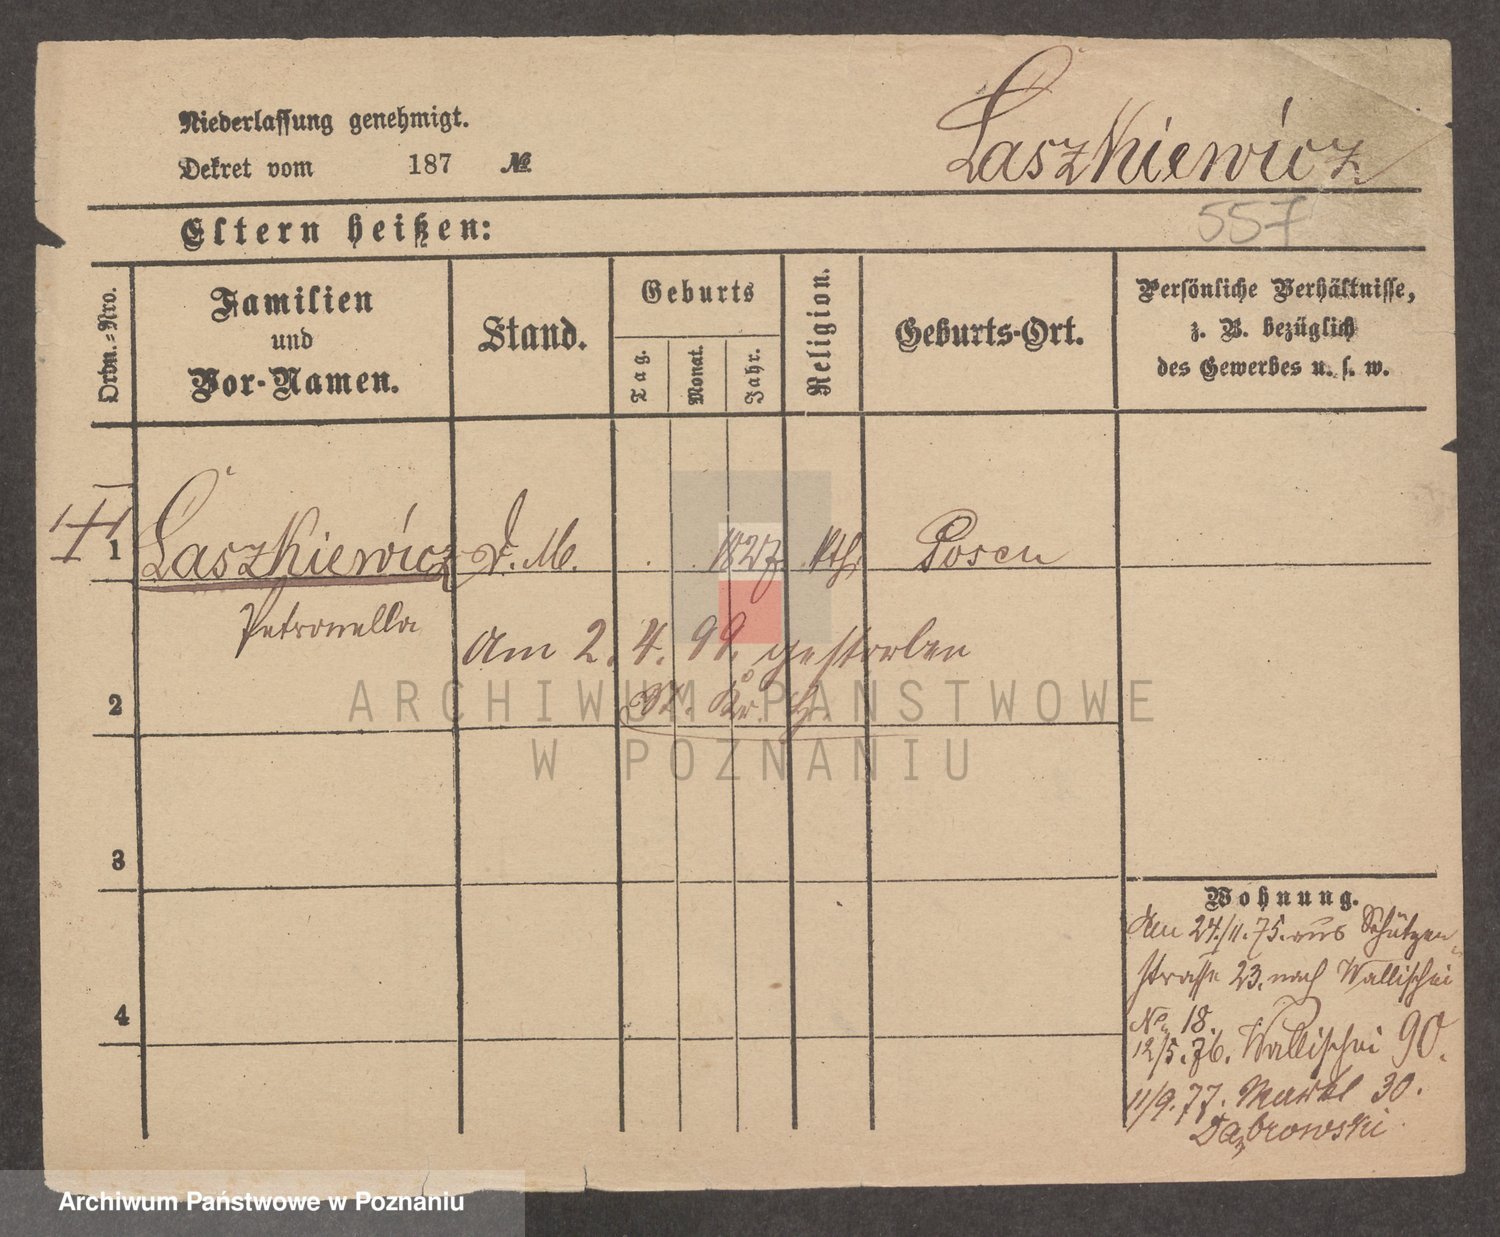 Niederlassung genehmigt.
Dekret vom 187 №
Laszkiewicz
557
Eltern heißen:
Ordn.-Nro.
Familien
und
Vor-Namen.
Stand.
Geburts
Tag.
Monat.
Jahr.
Religion.
Geburts-Ort.
Persönliche Verhältnisse,
z. B. bezüglich
des Gewerbes u. s. w.
1
Laszkiewicz
d. M.
1827
kth.
Posen
Petronella
Am 2. 4. 99. gestorben
2
ARCHIWUM PAŃSTWOWE
W POZNANIU
3
4
Wohnung.
Am 24/11. 75. aus Schützen
strasse 23. nach Wallischei
No 18.
12/5. 76. Wallischei 90.
11/9. 77. Markt 30.
Dąbrowski
Archiwum Państwowe w Poznaniu